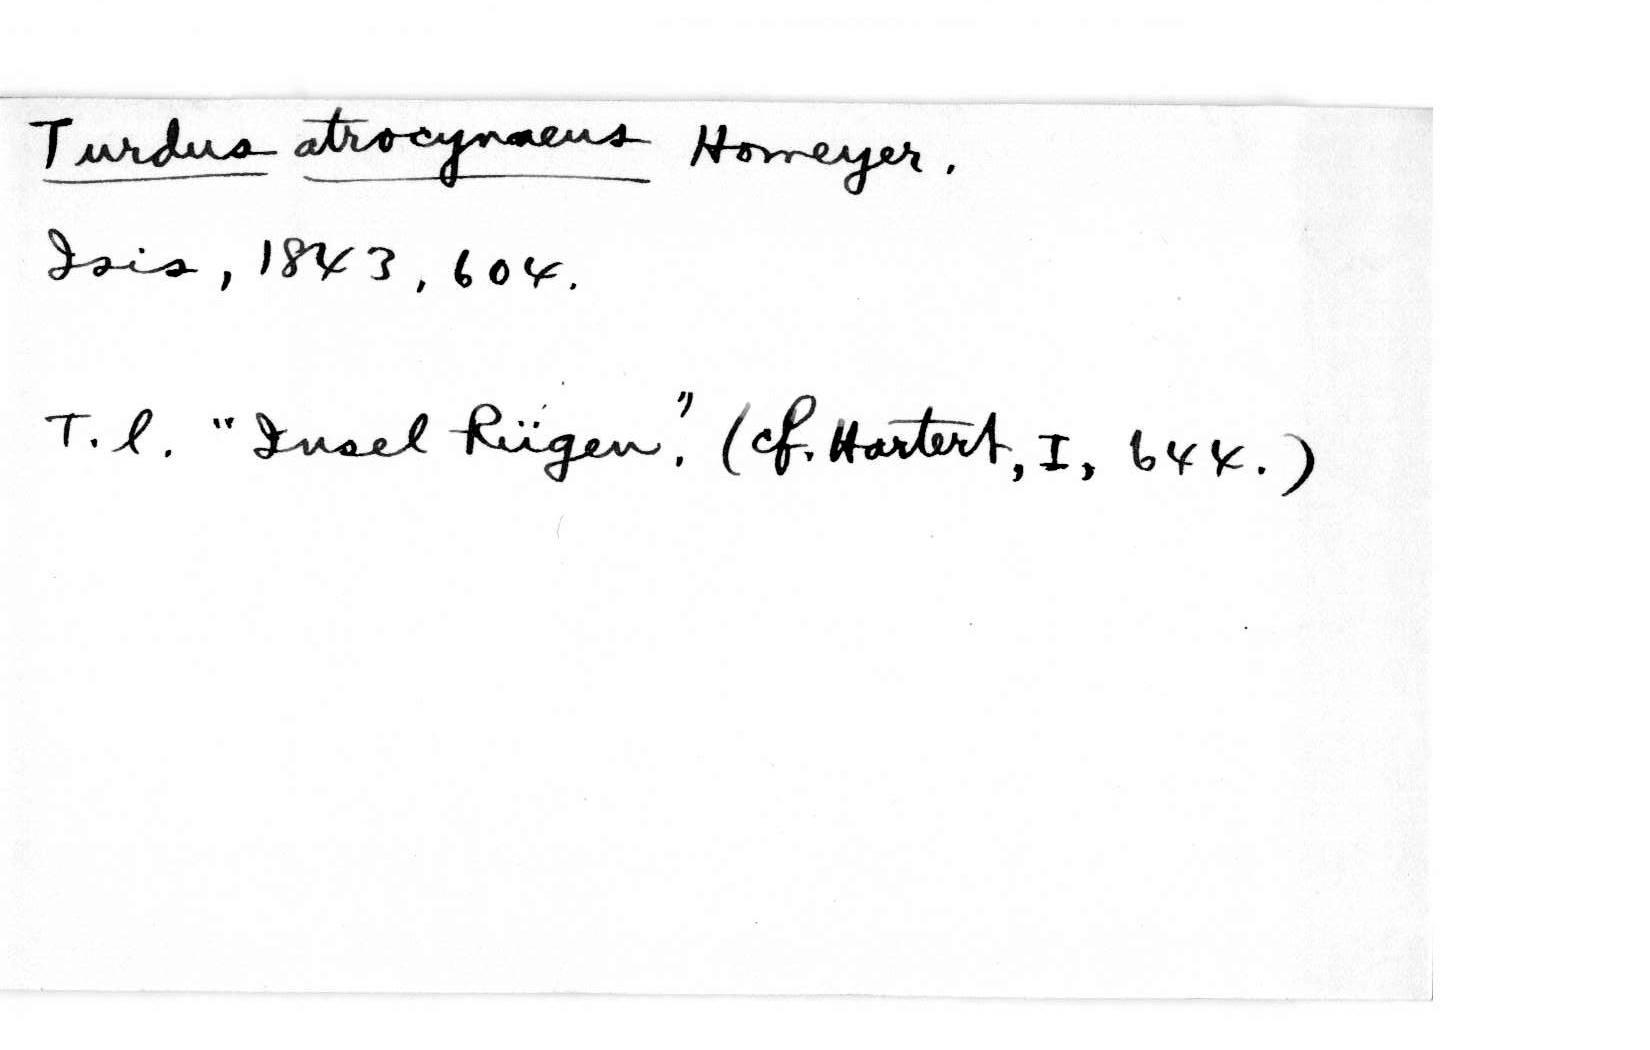 Turdus atrocyaneus Homeyer.
Isis, 1843, 604.
T. l. "Insel Rügen." (cf. Hartert, I, 644.)